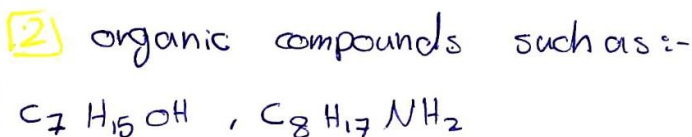 2 organic compounds such as :-
C7 H15 OH , C8 H17 NH2